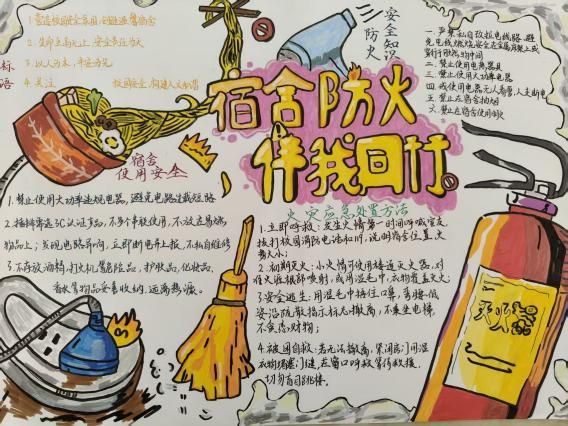 标语
1. 营造校园安全家园,问题温馨宿舍
2. 生命至高无上,安全责任为天
3. 以人为本,平安为先
4. 关注 校园安全,构建人文和谐
防火
安全知识
宿舍防火
伴我同行
一. 严禁私自改拉电线路,避免电线燃烧
二. 禁止使用电热器具
三. 禁止使用大功率电器
四. 或使用电器无人看管,人走断电
五. 禁止在宿舍抽烟
六. 禁止在宿舍使用
宿舍
使用安全
1. 禁止使用大功率违规电器,避免电路过载短路
2. 插排需选3C认证产品,不多个串联使用,不放在易燃
物品上;发现电路异响,立即断电上报,不私自维修
3. 不存放酒精,打火机等危险品,护肤品,化妆品,
香水等物品妥善收纳,远离热源。
火灾应急处置方法
1. 立即呼救:发生火情第一时间呼喊室友,
拨打校园消防电话和119,说明宿舍位置,火
势大小;
2. 初期灭火:小火情可使用楼道灭火器,对
准火焰根部喷射,或用湿毛巾,衣物覆盖灭火;
3. 安全逃生:用湿毛巾捂住口鼻,弯腰低
姿沿疏散指示标志撤离,不乘坐电梯,
不贪恋财物;
4. 被困自救:若无法撤离,紧闭房门用湿
衣物堵塞门缝,在窗口呼救等待救援。
切勿盲目跳楼。
灭火器